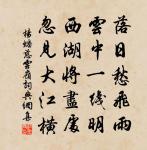 落日愁飛雨
雲中一線明
西湖將盡處
忽見大江橫
楊蟠慈雲嶺詞典網集